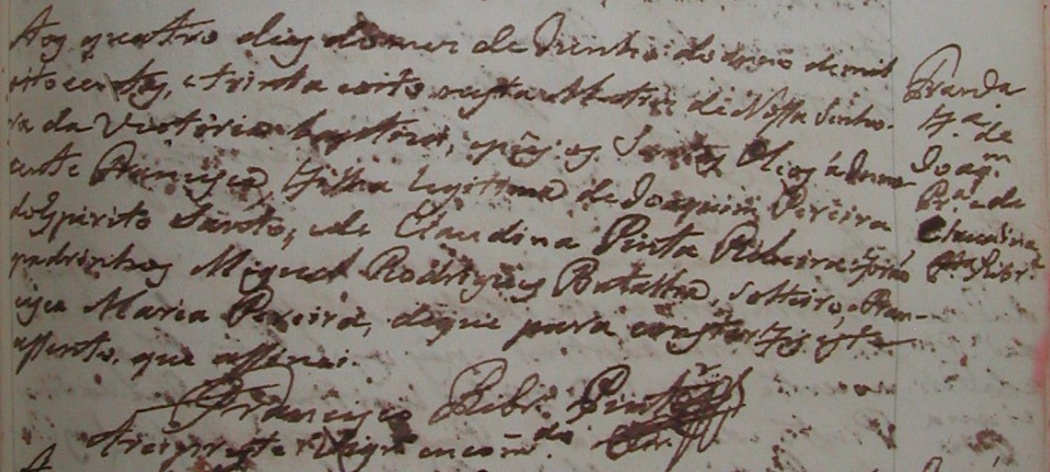 Aos quatro dias do mes de Junho do anno de mil
oito centos, e trinta e oito nesta Matriz de Nossa Senho-
ra da Victoria baptizei, e puz os Santos Oleos á Innoc
cente Francisca, filha legitima de Joaquim Pereira
do Espirito Santo, e de Claudina Pinta Ribeira: forão
padrinhos Miguel Rodrigues Batalha, solteiro, e Fran-
cisca Maria Pereira, de que para constar fiz este
assento, que assinei.
Francisco Ribr.º Pinto
Arcipreste Vigr.º encom.do
Franca
f.ª de
Joaqm.
Pr.ª e de
Claudina
Ribr.ª